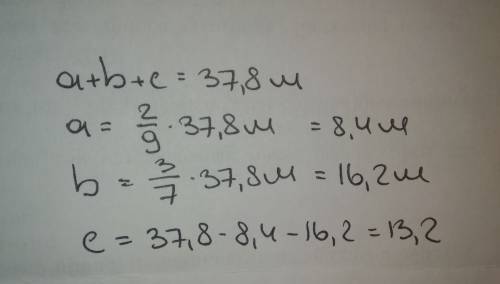 a+b+c = 37,8 м
a = 2/9 · 37,8 м = 8,4 м
b = 3/7 · 37,8 м = 16,2 м
c = 37,8 - 8,4 - 16,2 = 13,2